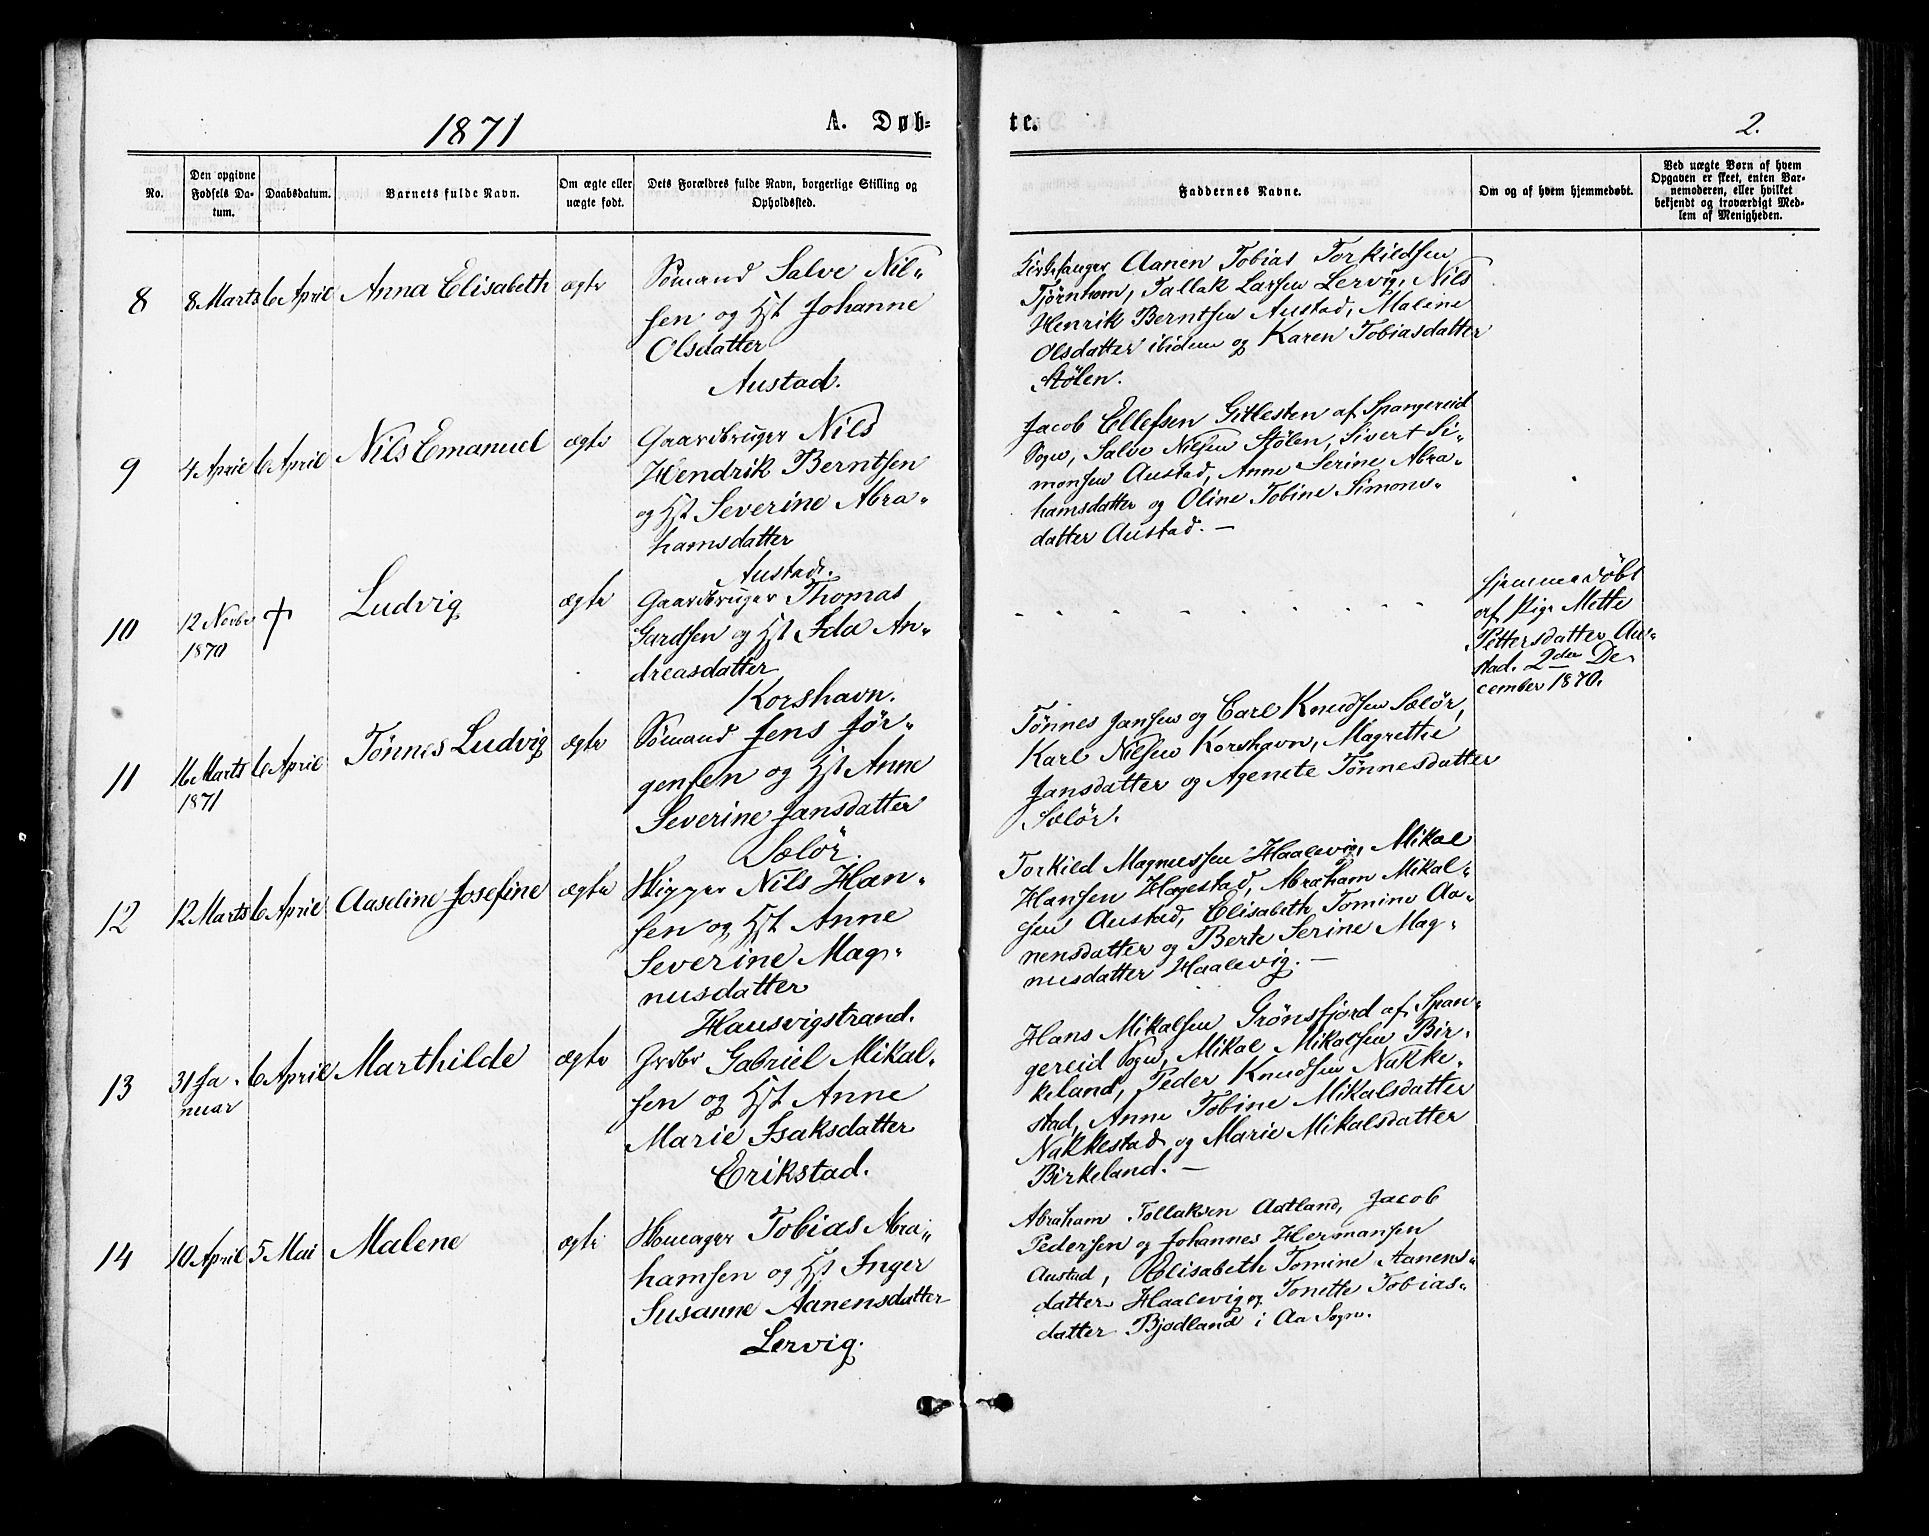 1871
A. Døb-
te.
2.
No.
Den opgivne
Fødsels Da-
tum.
Daabsdatum.
Barnets fulde Navn.
Om ægte eller
uægte født.
Dets Forældres fulde Navn, borgerlige Stilling og
Opholdssted.
Faddernes Navne.
Om og af hvem hjemmedøbt.
Ved uægte Børn af hvem
Opgaven er skeet, enten Bar-
nemoderen, eller hvilket
bekjendt og troværdigt Med-
lem af Menigheden.
8
8 Marts
6 April
Anna Elisabeth
ægte
Sømand Salve Nil-
sen og Hst Johanne
Olsdatter
Austad.
Kirkesanger Aanen Tobias Torkildsen
Tjørnhom, Tallak Larsen Lervig, Nils
Henrik Berntsen Austad, Maline
Olsdatter ibidem og Karen Tobiasdatter
Stølen.
9
4 April
6 April
Nils Emanuel
ægte
Gaardbruger Nils
Hendrik Berntsen
og Hst Severine Abra-
hamsdatter
Austad.
Jacob Ellefsen Gitlesten af Spangereid
Sogn, Salve Nilsen Stølen, Sivert Si-
monsen Austad, Anne Serine Abra-
hamsdatter og Oline Tobine Simons-
datter Austad. —
10
12 Novbr
1870
†
Ludvig
ægte
Gaardbruger Thomas
Gardsen og Hst Ida An-
dreasdatter
Korshavn.
hjemmedøbt
af Pige Mette
Pettersdatter Au-
stad. 2den De-
cember 1870.
11
16 Marts
1871
6 April
Tønnes Ludvig
ægte
Sømand Jens Jør-
gensen og Hst Anne
Severine Jansdatter
Sælör.
Tønnes Jansen og Carl Knudsen Sælör,
Karl Nilsen Korshavn, Magrethe
Jansdatter og Agenete Tønnesdatter
Sælör.
12
12 Marts
6 April
Aaseline Josefine
ægte
Nils Han-
sen og Hst Anne
Severine Mag-
nusdatter
Hausvigstrand.
Torkild Magnussen Haalevig, Mikal
Hansen Hagestad, Abraham Mikal-
sen Austad, Elisabeth Tomine Aa-
nensdatter og Berte Serine Mag-
nusdatter Haalevig. —
13
31 Ja-
nuar
6 April
Marthilde
ægte
Grdbr Gabriel Mikal-
sen og Hst Anne
Marie Isaksdatter
Erikstad.
Hans Mikalsen Grønsfjord af Span-
gereid Sogn, Mikal Mikalsen Bir-
keland, Peder Knudsen Nakke-
stad, Anne Tobine Mikalsdatter
Nakkestad og Marie Mikalsdatter
Birkeland. —
14
10 April
5 Mai
Malene
ægte
Tobias Abra-
hamsen og Hst. Inger
Susanne Aanensdatter
Lervig.
Abraham Tollaksen Aatland, Jacob
Pedersen og Johannes Hermansen
Austad, Elisabeth Tomine Aanens-
datter Haalevig og Tonette Tobias-
datter Bjodland i Aa Sogn.